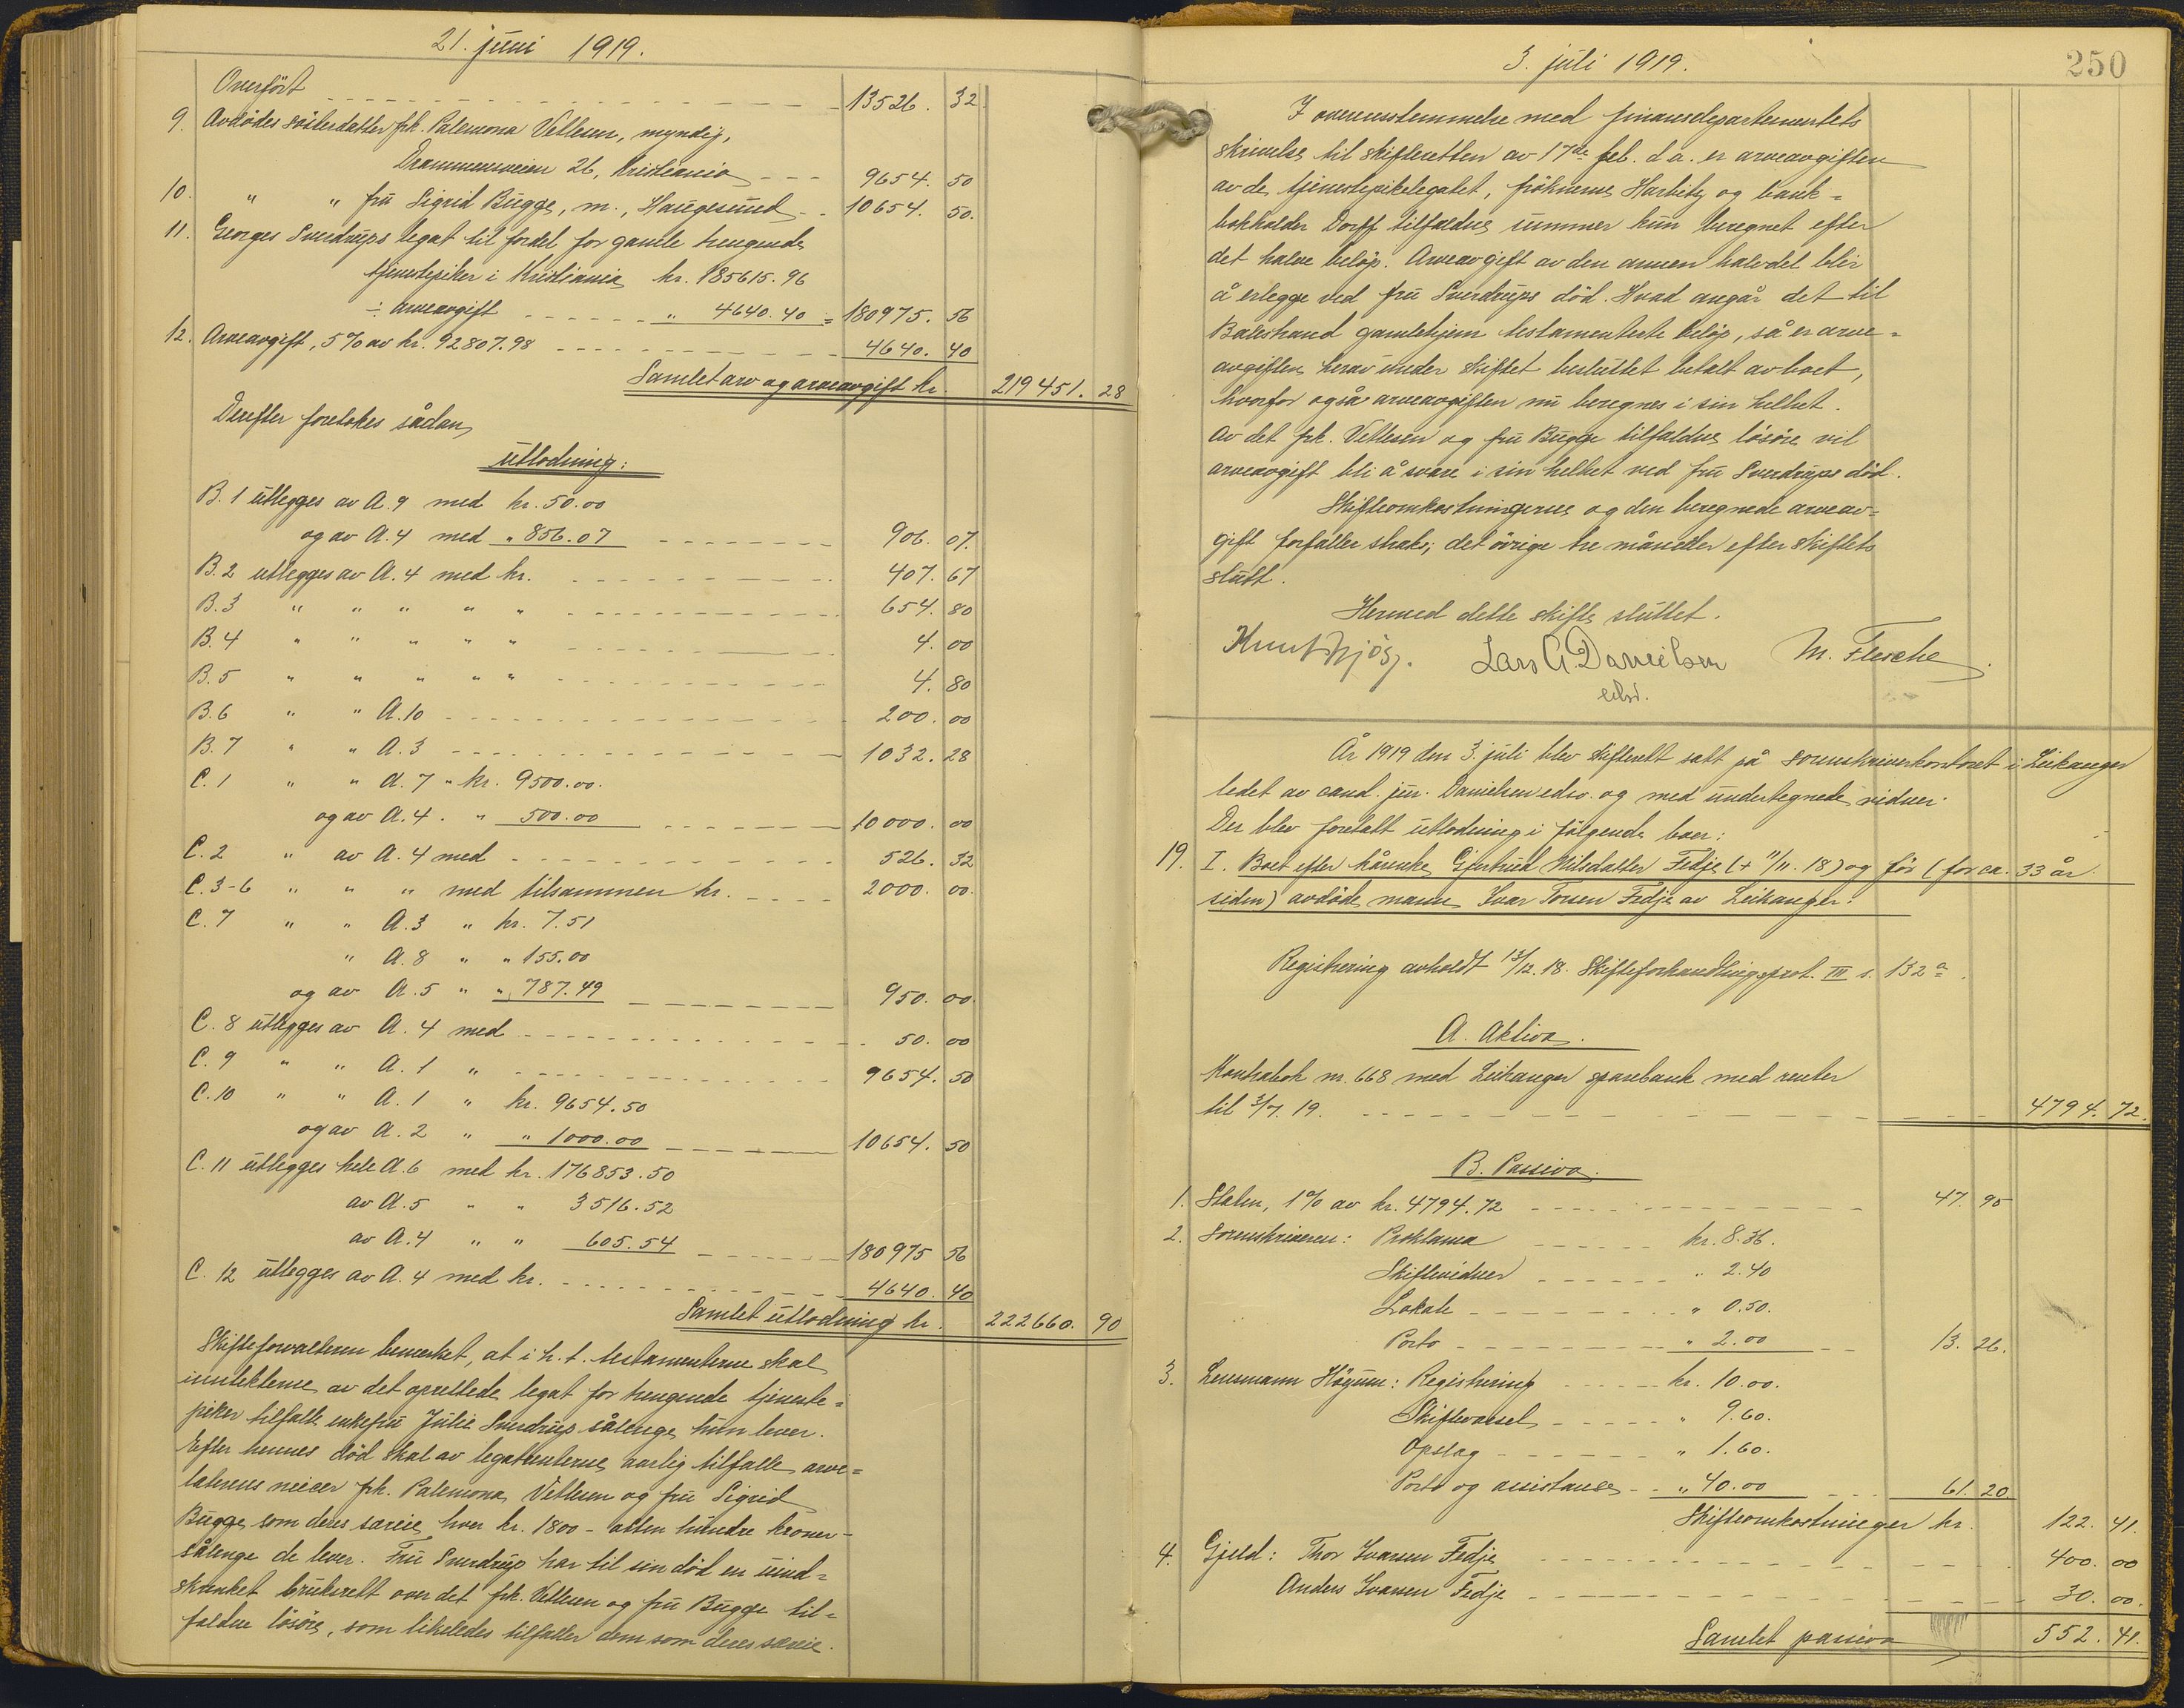 21. juni 1919.
Overfört 13526. 32
9. Avdödes sösterdatter frk. Palemona Vetlesen, myndig,
Drammensveien 26, Kristiania 9654. 50
10. " " fru Sigrid Bugge, m., Haugesund 10654. 50.
11. Georges Sverdrups legat til fordel for gamle trengende
tjenestepiker i Kristiania kr. 185615.96
÷ arveavgift " 4640.40 = 180975. 56
12. Arveavgift, 5 % av kr. 92807.98 4640. 40
Samlet arv og arveavgift kr. 219451. 28
Derefter foretokes sådan
utlodning:
B. 1 utlegges av A. 9 med kr. 50.00
og av A. 4 med " 856.07 906. 07.
B. 2 utlegges av A. 4 med kr. 407. 67
B. 3 " " " " " 654. 80
B. 4 " " " " " 4. 00
B. 5 " " " " " 4. 80
B. 6 " " A. 10 200. 00
B. 7 " " A. 3 1032. 28
C. 1 " " A. 7 " kr. 9500.00.
og av A. 4. " 500.00 10000. 00
C. 2 " av A. 4 med 526. 32
C. 3-6 " " " med tilsammen kr. 2000. 00.
C. 7 " " A. 3 " kr. 7.51
" A. 8 " " 155.00
og av A. 5 " " 787.49 950. 00.
C. 8 utlegges av A. 4 med 50. 00
C. 9 " " A. 1 " 9654. 50
C. 10 " " A. 1 " kr. 9654.50
og av A. 2 " " 1000.00 10654. 50
C. 11 utlegges hele A. 6 med kr. 176853.50
av A. 5 " " 3516.52
av A. 4 " " 605.54 180975 56
C. 12 utlegges av A. 4 med kr. 4640. 40
Samlet utlodning kr. 222660. 90
Skifteforvalteren bemerket, at i h. t. testamenterne skal
inntekterne av det oprettede legat for trengende tjeneste=
piker tilfalle enkefru Julie Sverdrup sålenge hun lever.
Efter hennes död skal av legatrenterne aarlig tilfalle arve=
laterens niecer frk. Palemona Vetlesen og fru Sigrid
Bugge som deres særeie hver kr. 1800 - atten hundre kroner -
sålenge de lever. Fru Sverdrup har til sin död en uind=
skrænket bruksrett over det frk. Vetlesen og fru Bugge til=
faldne lösöre, som likeledes tilfaller dem som deres særeie.
3. juli 1919.
250
I overensstemmelse med finansdepartementets
skrivelse til skifteretten av 17de feb. d. a. er arveavgiften
av de tjenestepikelegatet, fröknerne Harbitz og bank=
bokholder Dorff tilfaldne summer kun beregnet efter
det halve belöp. Arveavgift av den annen halvdel blir
å erlegge ved fru Sverdrups död. Hvad angår det til
Balestrand gamlehjem testamenterte belöp, så er arve=
avgiften herav under skiftet besluttet betalt av boet,
hvorfor også arveavgiften nu beregnes i sin helhet.
Av det frk. Vetlesen og fru Bugge tilfaldne lösöre vil
arveavgift bli å svare i sin helhet ved fru Sverdrups död.
Skifteomkostningerne og den beregnede arveav=
gift forfaller straks; det övrige tre måneder efter skiftets
slutt.
Hermed dette skifte sluttet.
Lars A. Danielsen M. Flesche
edsv.
År 1919 den 3. juli blev skifterett satt på sorenskriverkontoret i Leikanger
ledet av cand. jur. Danielsen edsv. og med undertegnede vidner.
Der blev foretatt utlodning i fölgende boer:
19. I. Boet efter kårenke Gjertrud Nilsdatter Fedje (+ 11/11. 18) og för (for ca. 33 år
siden) avdöde mann Ivar Torsen Fedje av Leikanger.
Registrering avholdt 13/12. 18. Skifteforhandlingsprot. III s. 132a.
A. Aktiva.
Kontrabok nr. 668 med Leikanger sparebank med renter
til 3/7. 19. 4794. 72.
B. Passiva.
1. Staten, 1 % av kr. 4794.72 47. 95
2. Sorenskriveren: Proklama kr. 8.36.
Skiftevidner " 2.40
Lokale " 0.50.
Porto " 2.00 13. 26.
3. Lensmann Högum: Registrering kr. 10.00.
Skiftevarsel " 9.60.
Opslag " 1.60.
Porto og assistanse " 40.00 61. 20.
Skifteomkostninger kr. 122. 41.
4. Gjeld: Thor Ivarsen Fedje 400. 00
Anders Ivarsen Fedje 30. 00.
Samlet passiva 552. 41.